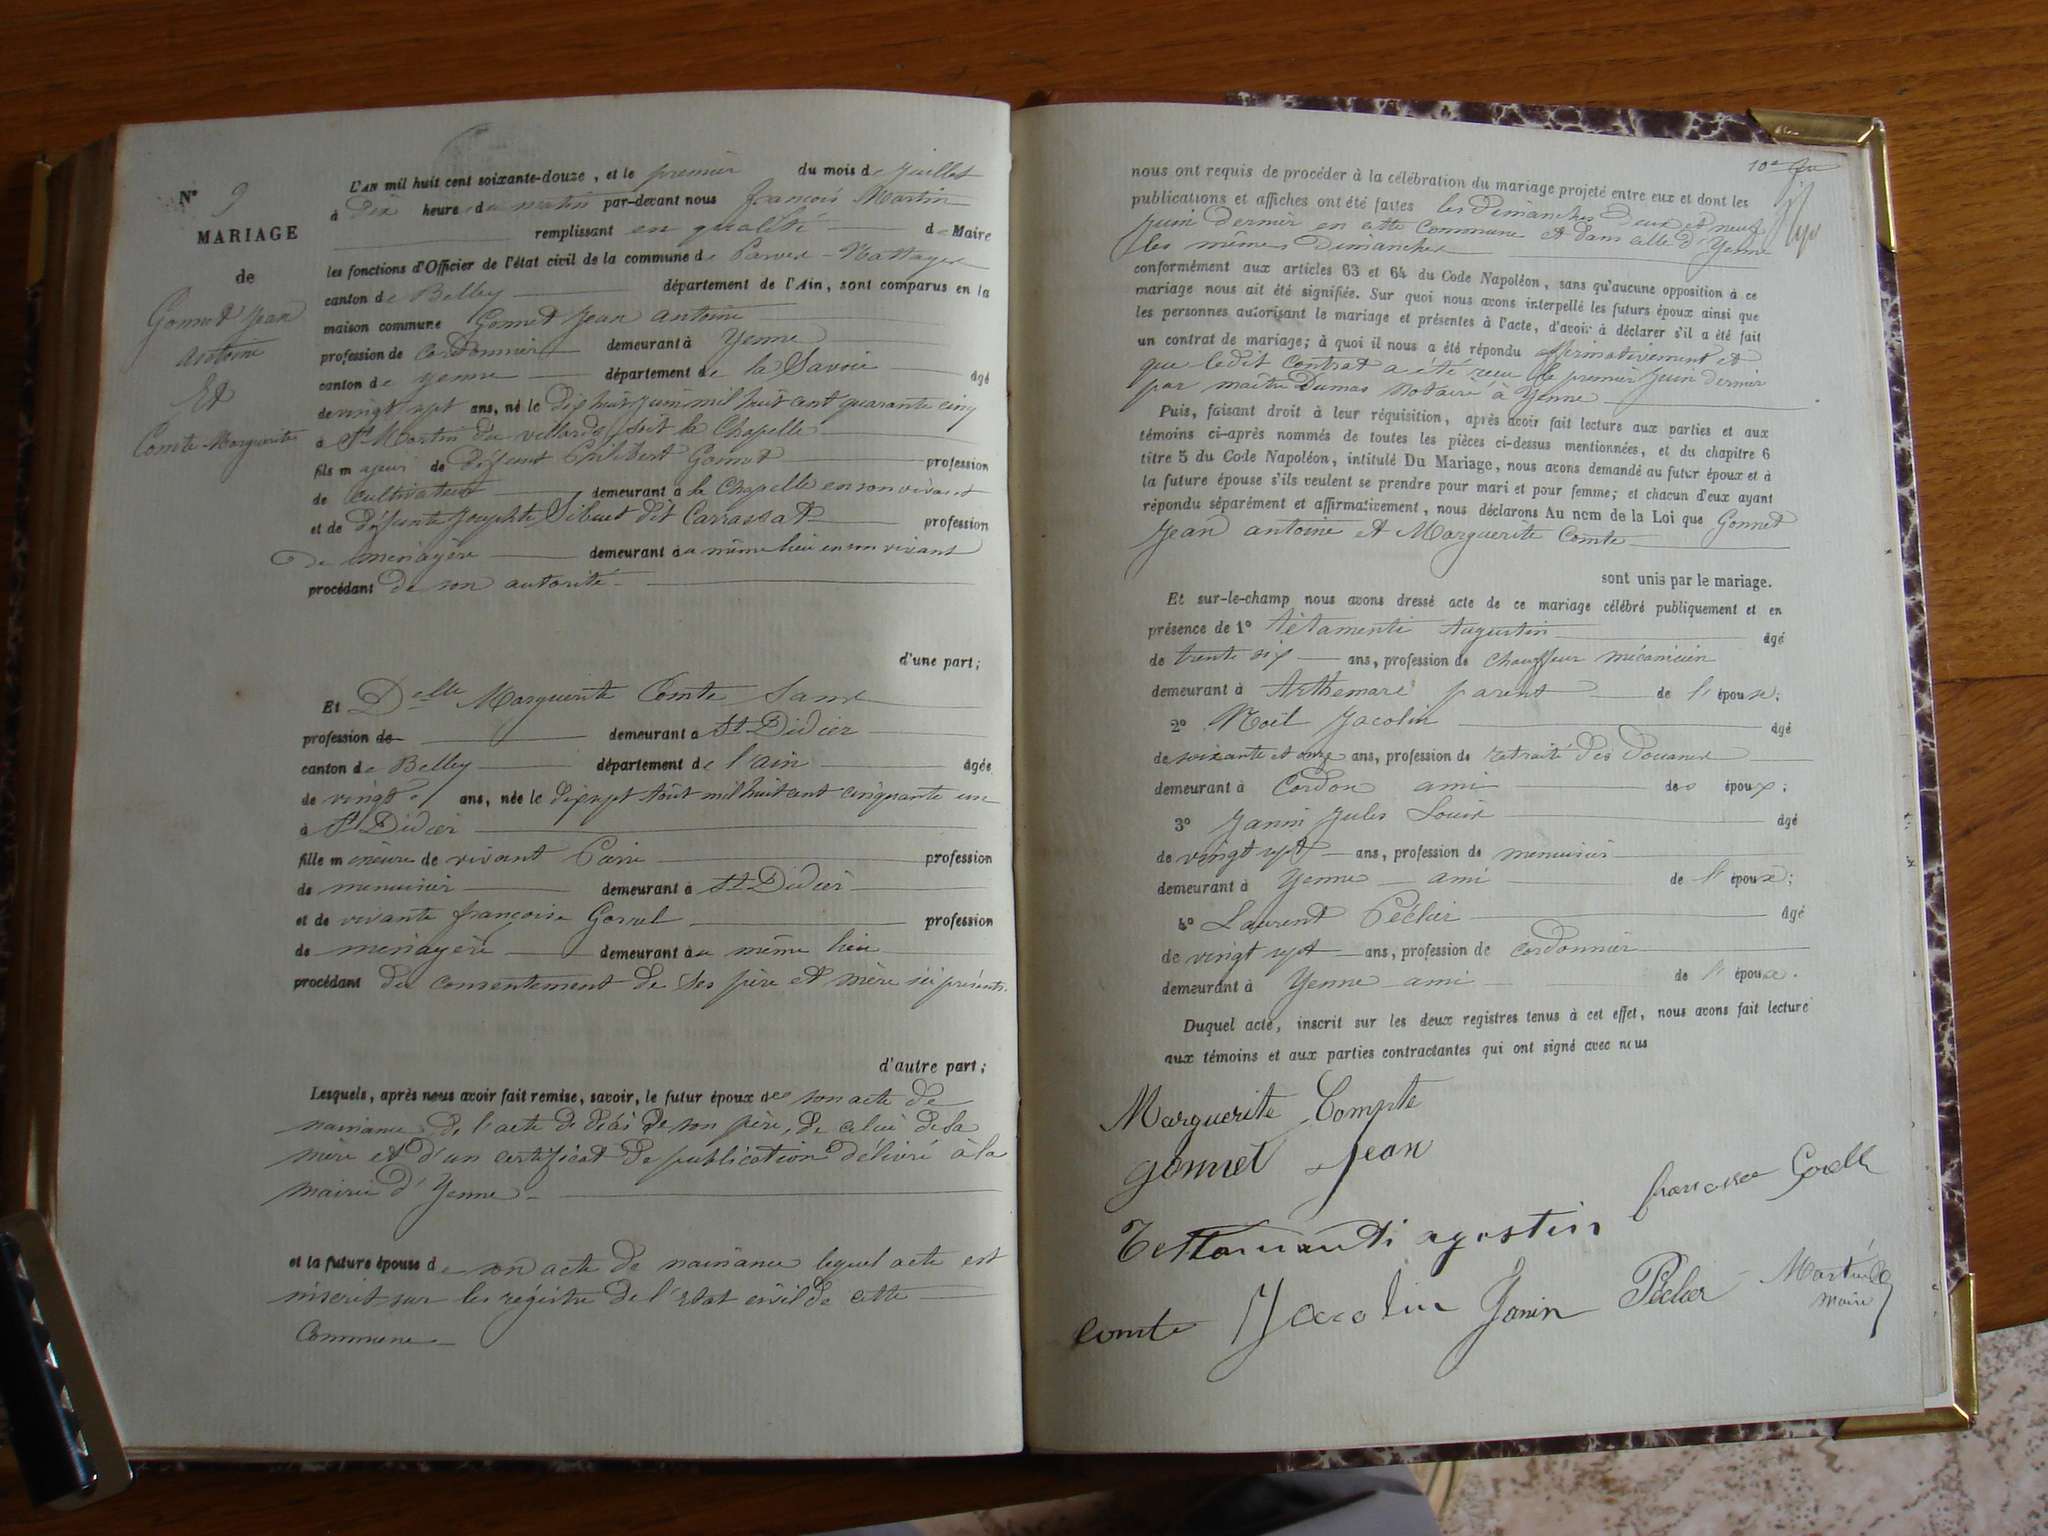 N° 9
MARIAGE
de
Gonnet Jean
Antoine
Et
Comte Marguerite
L'AN mil huit cent soixante-douze, et le premier du mois de Juillet
à Dix heure du matin par-devant nous François Martin
remplissant en qualité de Maire
les fonctions d'Officier de l'état civil de la commune de Parves-Nattages
canton de Belley département de l'Ain, sont comparus en la
maison commune Gonnet Jean Antoine
profession de Cordonnier demeurant à Yenne
canton de Yenne département de la Savoie âgé
de vingt sept ans, né le dix huit juin mil huit cent quarante cinq
à St Martin du villard, soit la Chapelle
fils majeur de défunt Philibert Gonnet profession
de Cultivateur demeurant à la Chapelle en son vivant
et de défunte Josephte Sibuet dit Carrassat profession
De ménagère demeurant au même lieu en son vivant
procédant de son autorité
d'une part;
Et Delle Marguerite Comte Sans
profession de demeurant à St Didier
canton de Belley département de l'ain âgée
de vingt ans, née le dix sept août mil huit cent cinquante un
à St Didier
fille mineure de vivant profession
de menuisier demeurant à St Didier
et de vivante françoise Gorrel profession
de ménagère demeurant au même lieu
procédant du consentement de ses père et mère ici présents.
d'autre part;
Lesquels, après nous avoir fait remise, savoir, le futur époux de son acte de
naissance, de l'acte de décès de son père, de celui de sa
mère et d'un certificat de publication délivré à la
mairie d'Yenne
et la future épouse de son acte de naissance lequel acte est
inscrit sur les régistre de l'état civil de cette
Commune
10e
nous ont requis de procéder à la célébration du mariage projeté entre eux et dont les
publications et affiches ont été faites les dimanches deux et neuf
juin dernier en cette Commune et dans celle d'Yenne
les mêmes Dimanches
conformément aux articles 63 et 64 du Code Napoléon, sans qu'aucune opposition à ce
mariage nous ait été signifiée. Sur quoi nous avons interpellé les futurs époux ainsi que
les personnes autorisant le mariage et présentes à l'acte, d'avoir à déclarer s'il a été fait
un contrat de mariage; à quoi il nous a été répondu affirmativement et
que ledit Contrat a été reçu le premier Juin dernier
par maître Dumas Notaire à Yenne
Puis, faisant droit à leur réquisition, après avoir fait lecture aux parties et aux
témoins ci-après nommés de toutes les pièces ci-dessus mentionnées, et du chapitre 6
titre 5 du Code Napoléon, intitulé Du Mariage, nous avons demandé au futur époux et à
la future épouse s'ils veulent se prendre pour mari et pour femme; et chacun d'eux ayant
répondu séparément et affirmativement, nous déclarons Au nom de la Loi que Gonnet
Jean Antoine et Marguerite Comte
sont unis par le mariage.
Et sur-le-champ nous avons dressé acte de ce mariage célébré publiquement et en
présence de 1° têtamenti Augustin âgé
de trente six ans, profession de chauffeur mécanicien
demeurant à Arthemare parent de l'épouse;
2° Noël Jacolin âgé
de soixante et onze ans, profession de retraité des Douanes
demeurant à Cordon ami des époux;
3° Janin Jules Louis âgé
de vingt sept ans, profession de menuisier
demeurant à Yenne ami de l'époux;
4° Laurent Péclier âgé
de vingt sept ans, profession de cordonnier
demeurant à Yenne ami de l'épouse.
Duquel acte, inscrit sur les deux registres tenus à cet effet, nous avons fait lecture
aux témoins et aux parties contractantes qui ont signé avec nous
Marguerite Compte
gonnet Jean
Testamenti agostin
Comte Jacolin Janin Péclier Martin
Maire